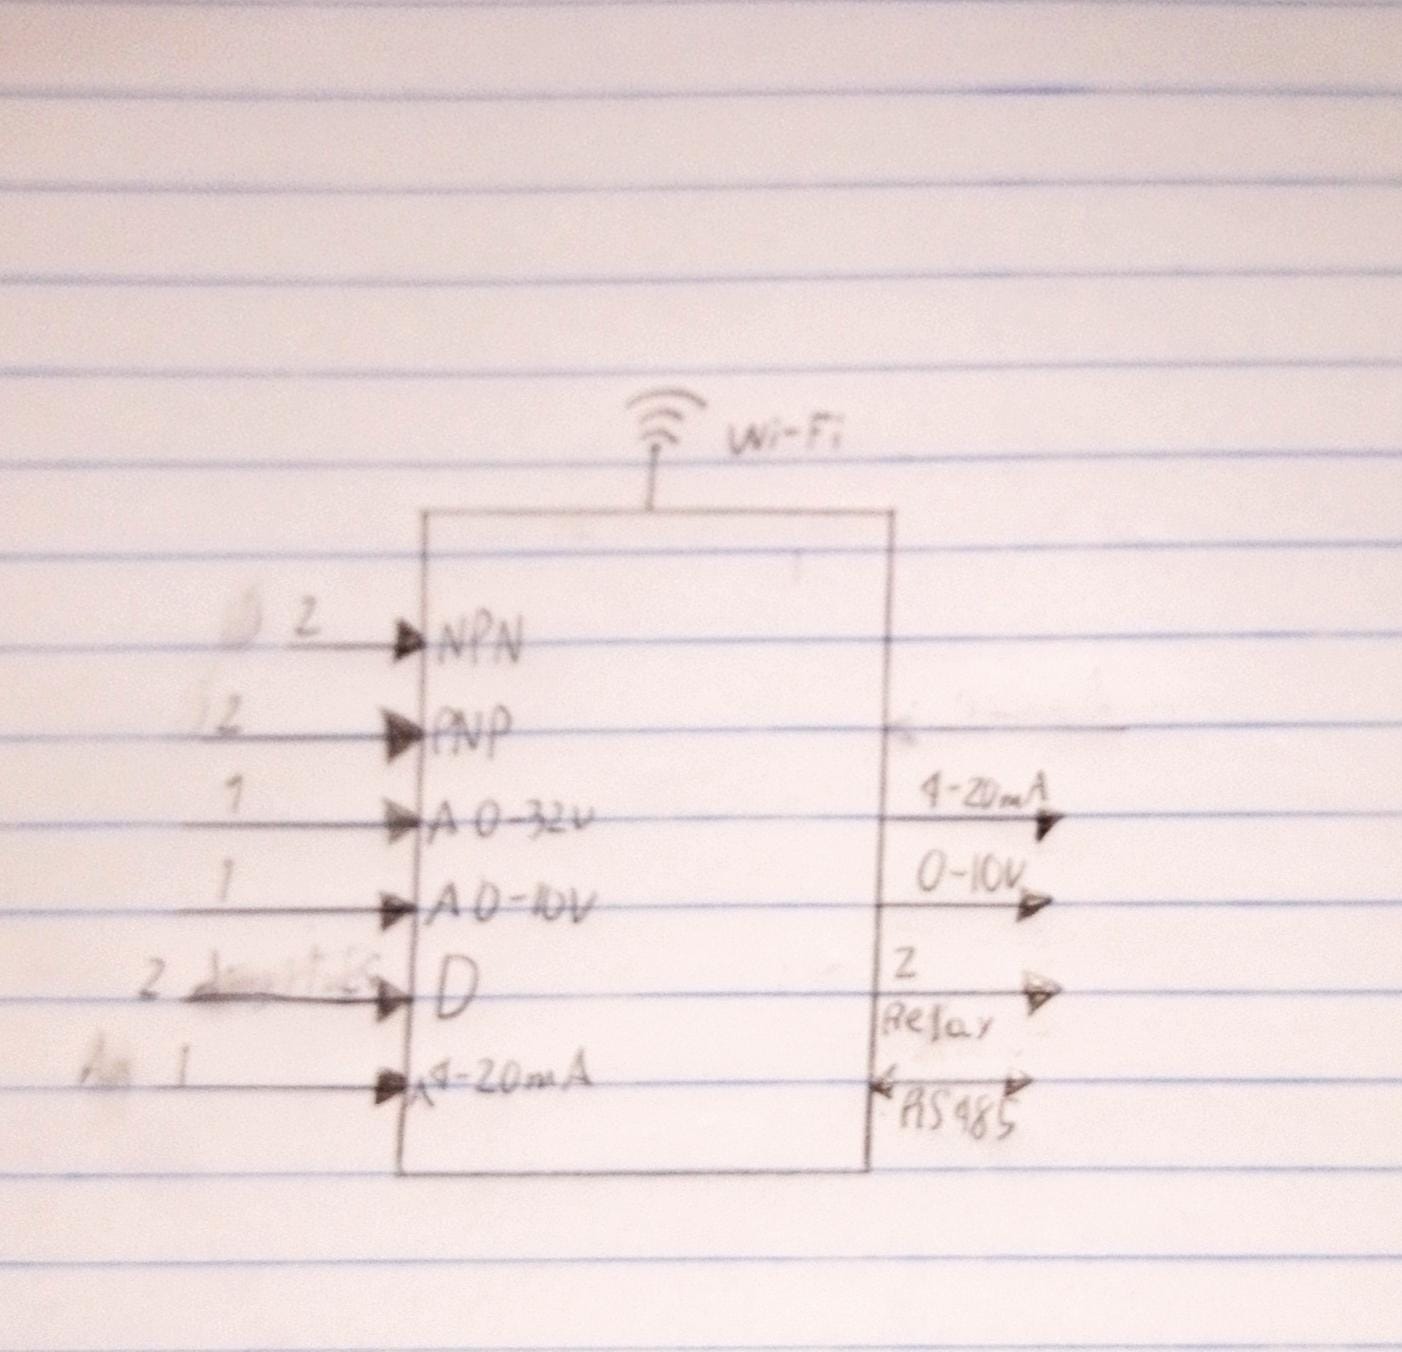 Wi-Fi
2 NPN
2 PNP
1 A 0-32V
1 A 0-10V
2 D
1 A 4-20mA
4-20mA
0-10V
2
Relay
RS485